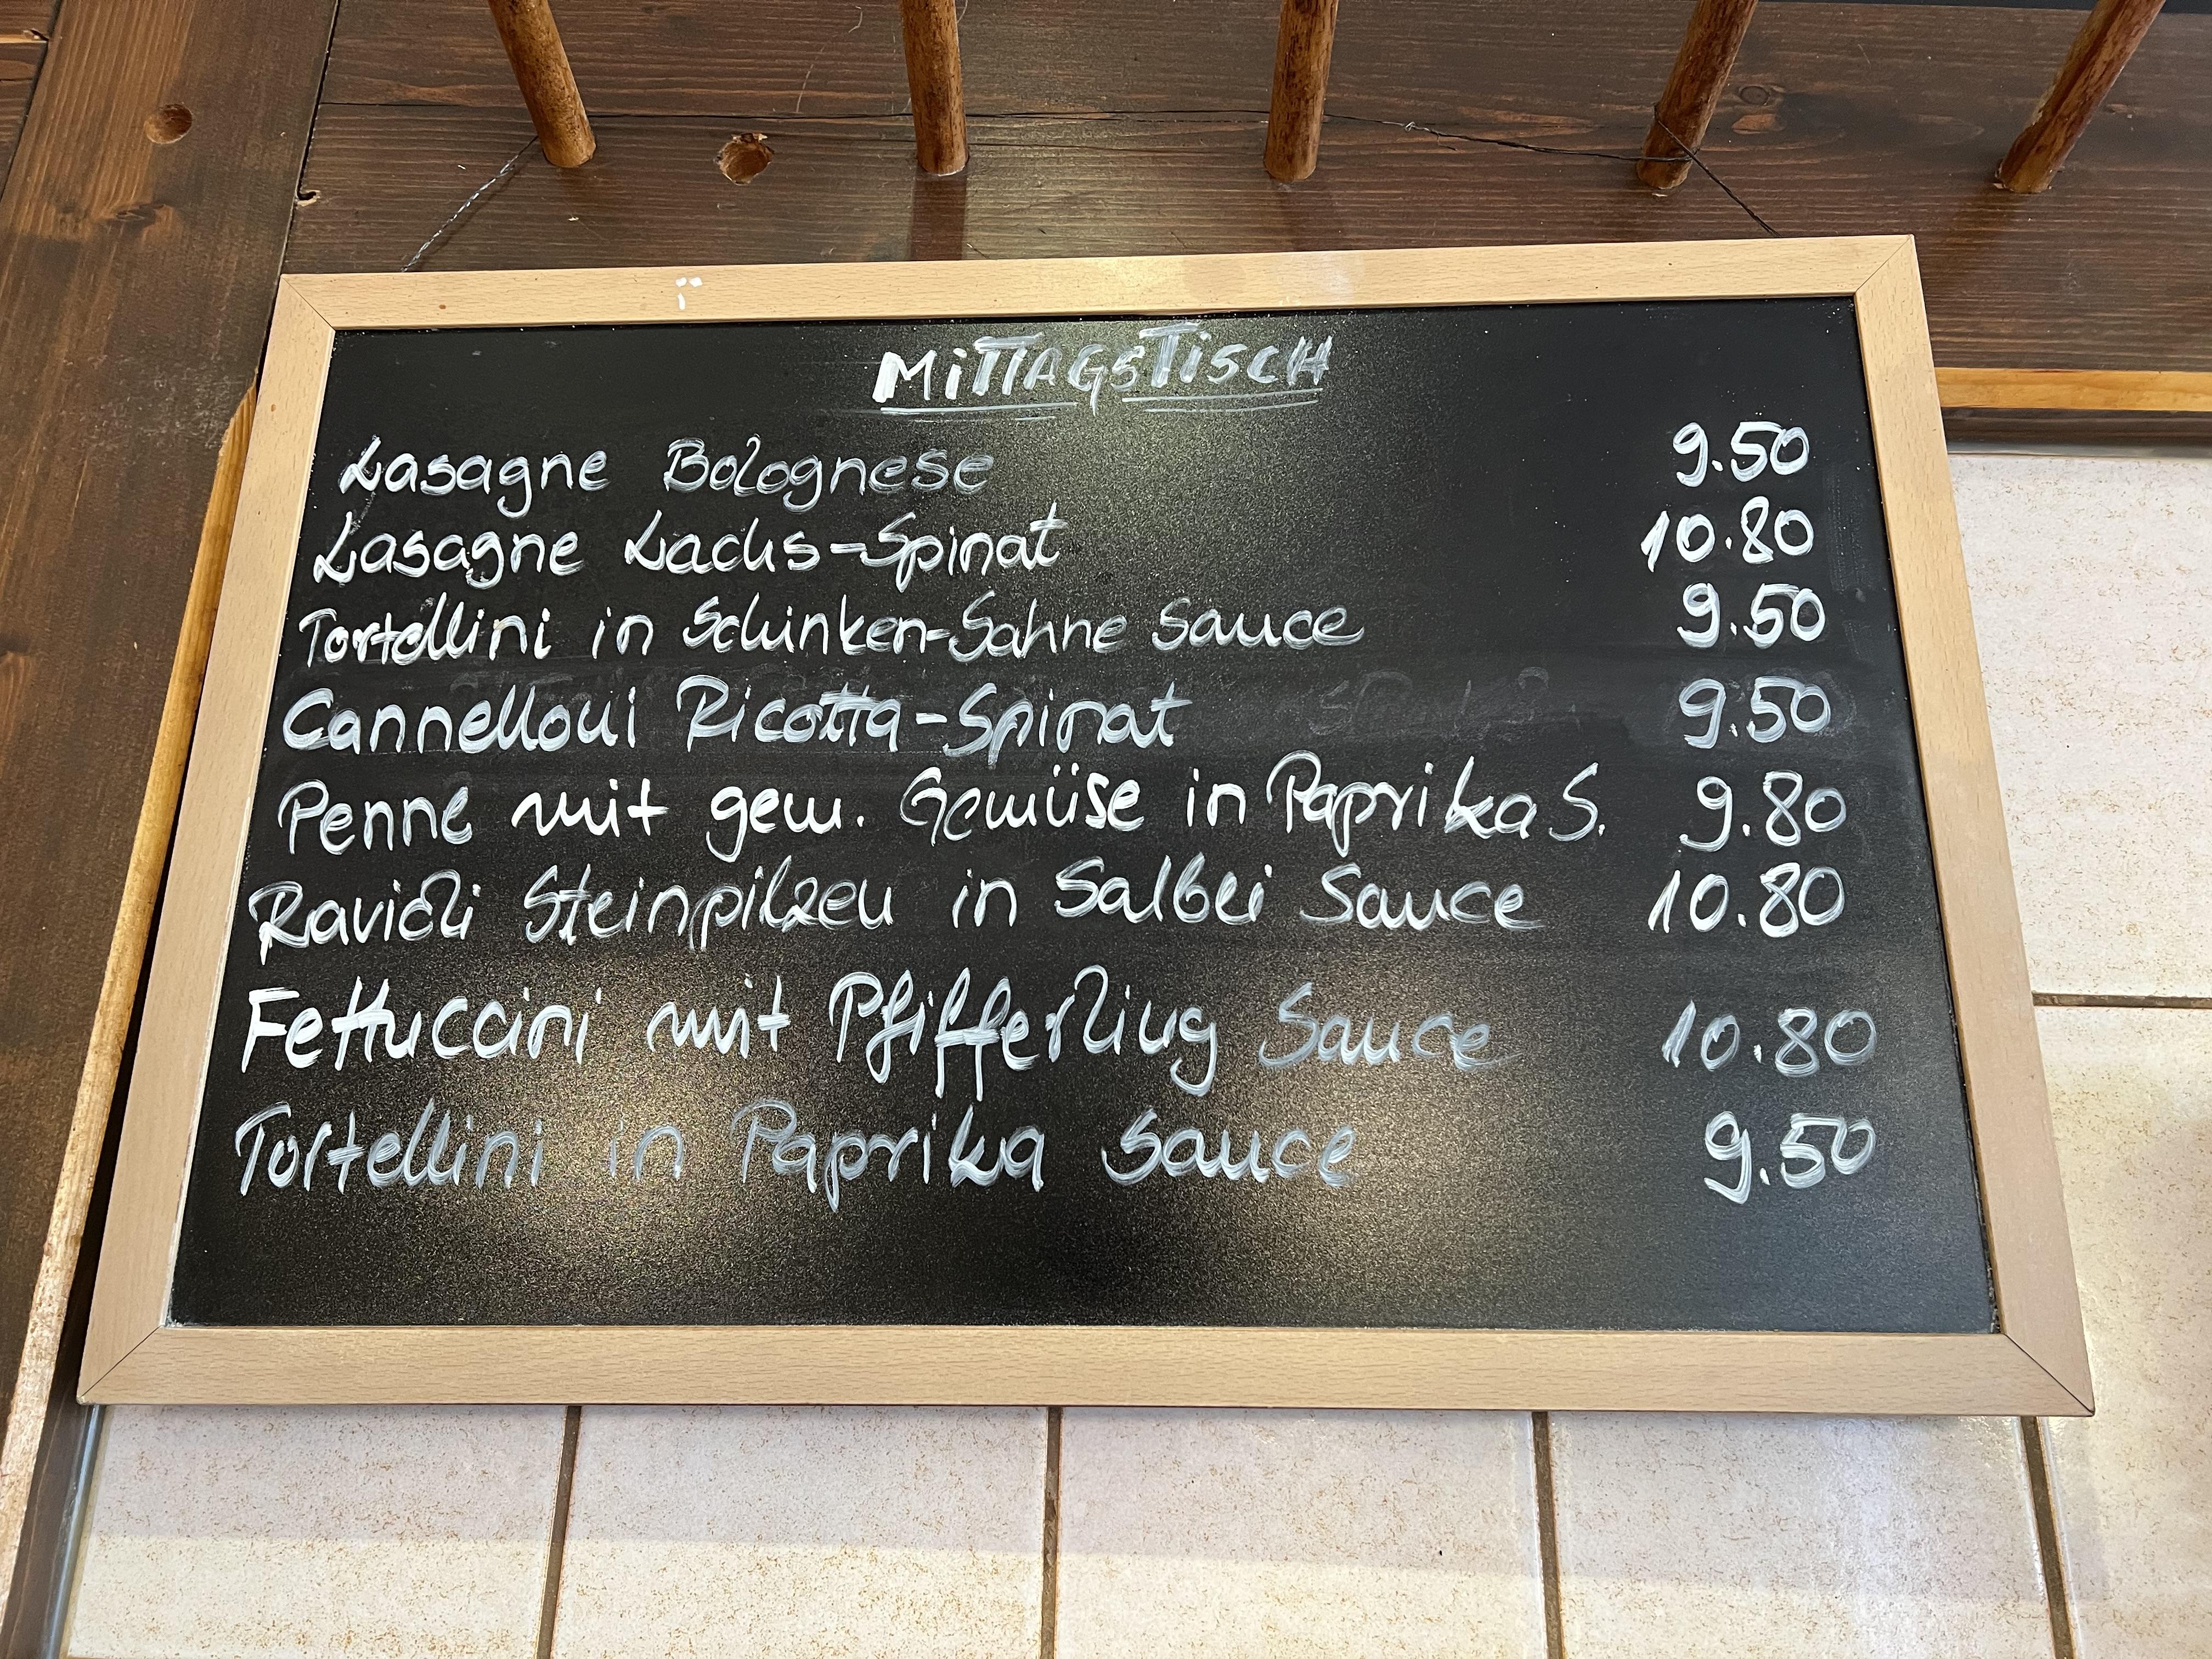 MiTTAGSTiSCH
Lasagne Bolognese 9.50
Lasagne Lachs-Spinat 10.80
Tortellini in Schinken-Sahne Sauce 9.50
Cannelloni Ricotta-Spinat 9.50
Penne mit gem. Gemüse in Paprika S. 9.80
Ravioli Steinpilzen in Salbei Sauce 10.80
Fettuccini mit Pfifferling Sauce 10.80
Tortellini in Paprika Sauce 9.50